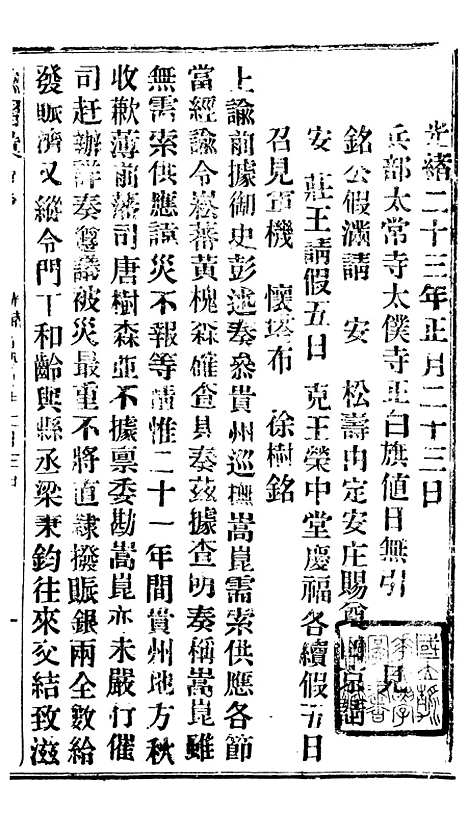 光緒二十三年正月二十三日
兵部太常寺太僕寺正白旗值日無引見
銘公假滿請　安　松壽由定安庄賜奠回京請
安　莊王請假五日　克王榮中堂慶福各續假五日
召見軍機　懷塔布　徐樹銘
上諭前據御史彭述奏叅貴州巡撫嵩崑需索供應各節
當經諭令崧蕃黃槐森確查具奏茲據查明奏稱嵩崑雖
無需索供應諱災不報等情惟二十一年間貴州地方秋
收歉薄前藩司唐樹森並不據稟委勘嵩崑亦未嚴行催
司赶辦詳奏遵議被災最重不將直隸撥賑銀兩全數給
發賑濟又縱令門丁和齡與縣丞梁秉鈞往來交結致滋